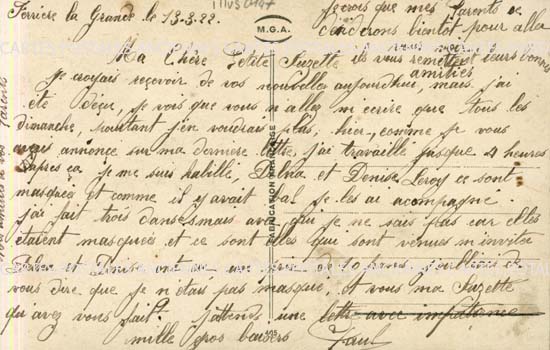 Ferriere la Grande le 13.3.22.
Ma Chère Petite Suzette
Je croyais reçevoir de vos nouvelles aujourdhui, mais j'ai
été déçu, je vois que vous n'allez m'ecrire que tous les
dimanche, pourtant j'en voudrais plus, hier, comme je vous
avais annoncé sur ma derniere lettre, j'ai travaillé jusque 4 heures
D'apres ca je me suis habillé, et Denise Leroy se sont
masquées et comme il y avait bal je les ai acompagné.
j'ai fait trois danses mais avec qui je ne sais pas car elles
etaient masquees et ce sont elles qui sont venues m'inviter
et Denise ont eu une de 10 francs j'oubliais de
vous dire que je n'etais pas masqué, et vous ma Suzette
qu'avez vous fait? j'attends une lettre avec impatience
mille gros baisers
Paul
Je crois que mes Parents se
deciderons bientot pour aller
vous voir
ils vous remettent leurs bonnes
amitiés
a vos Parents
M.G.A.
FABRICATION FRANÇAISE